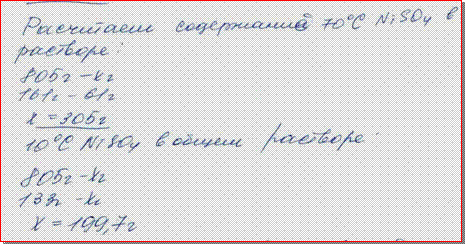 Расчитаем содержание 70°C NiSO4 в
растворе:
805г – xг
161г – 61г
x = 305г
10°C NiSO4 в общем растворе:
805г – xг
133г – xг
x = 199,7г